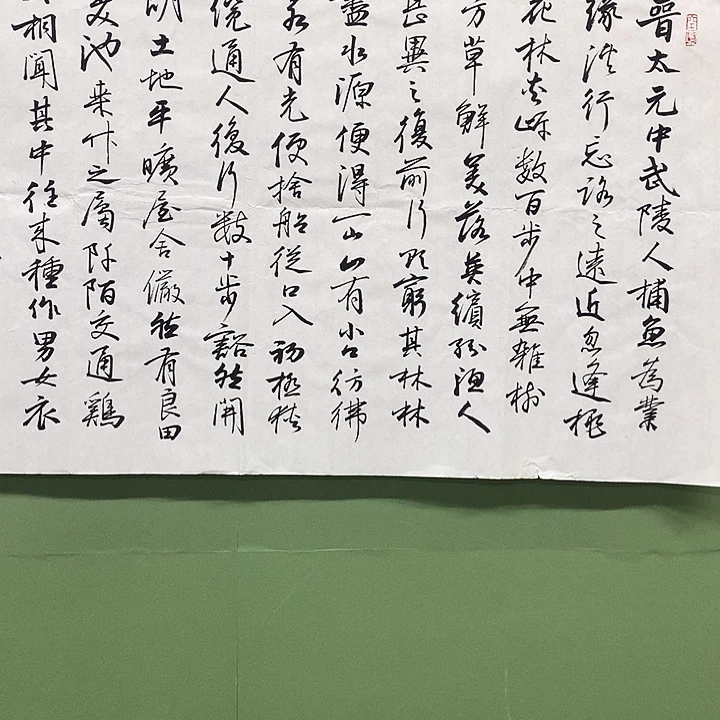 晉太元中武陵人捕魚為業
緣溪行忘路之遠近忽逢桃
花林夾岸數百步中無雜樹
芳草鮮美落英繽紛漁人
甚異之復前行欲窮其林林
盡水源便得一山山有小口彷彿
若有光便捨船從口入初極狹
纔通人復行數十步豁然開
朗土地平曠屋舍儼然有良田
美池桑竹之屬阡陌交通雞
相聞其中往來種作男女衣